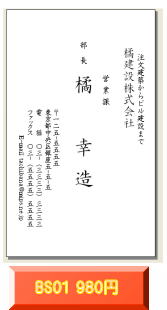 注文建築からビル建設まで
橘建設株式会社
営業課
部長
橘 幸造
〒一二五-五五五五
東京都中央区銀座五-五-五
電話 〇三-(三三三三)三三三三
ファックス 〇三-(五五五五)五五五五
BS01 980円